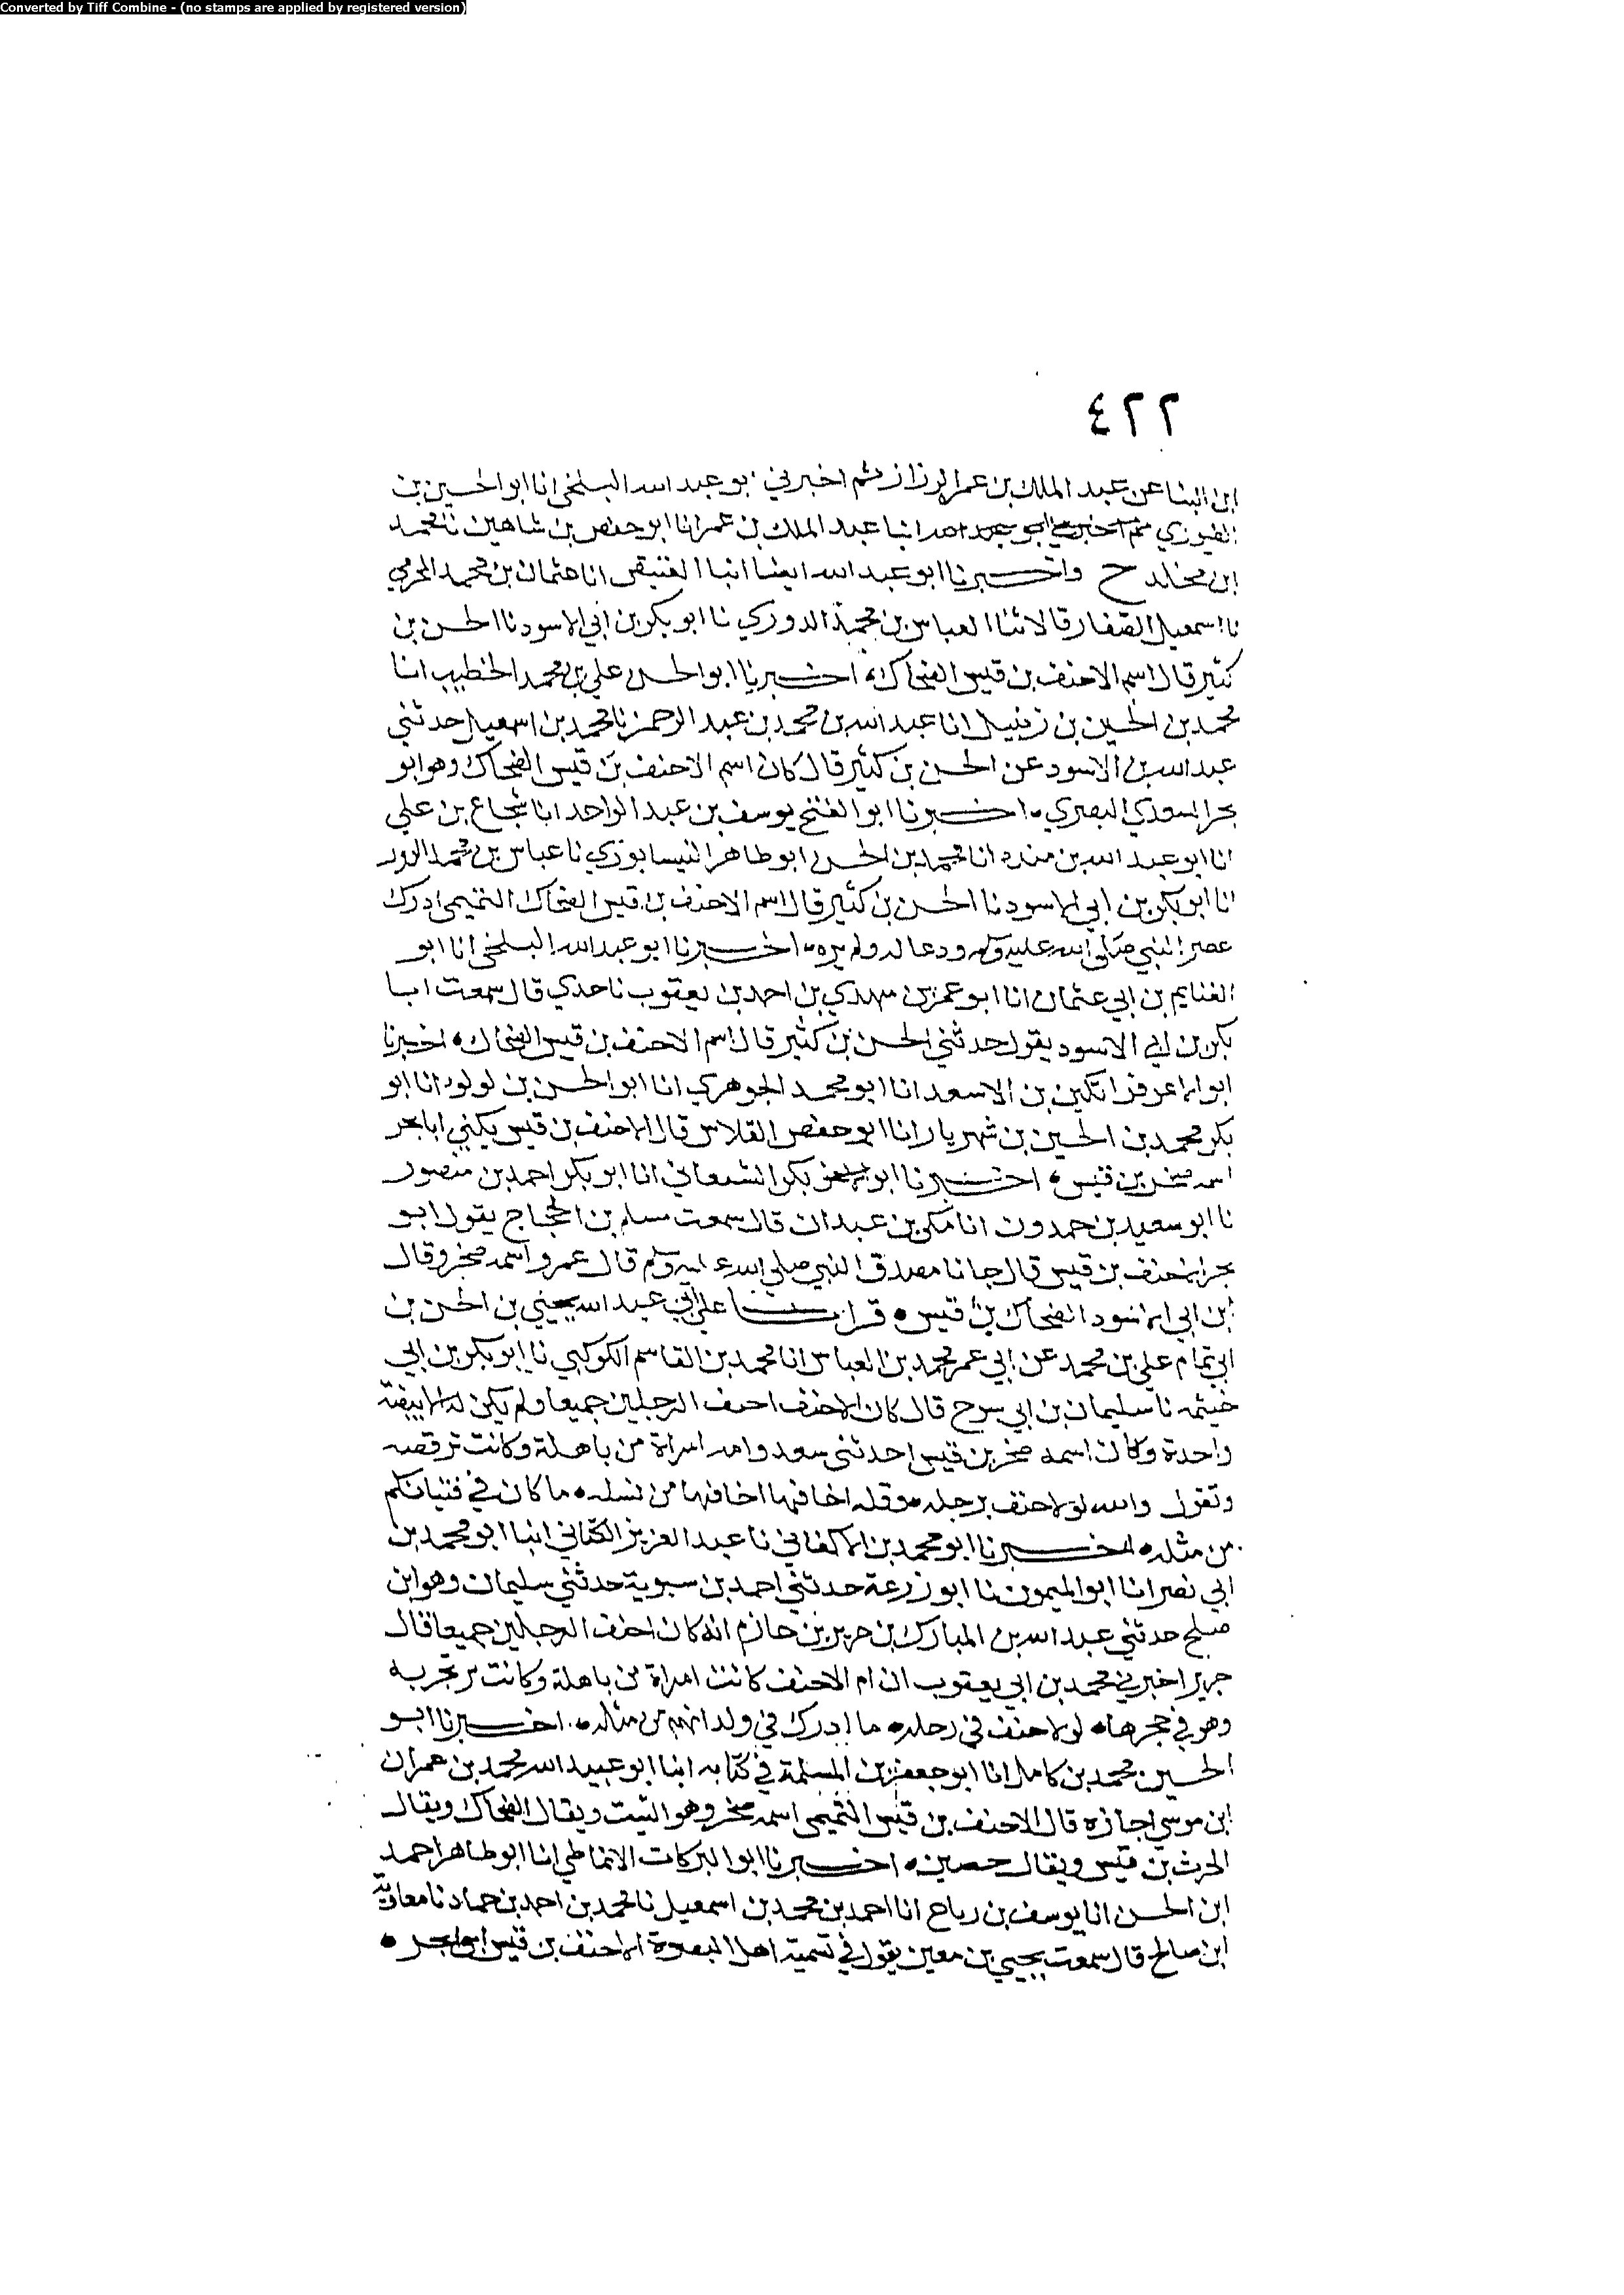 Converted by Tiff Combine - (no stamps are applied by registered version)
٤٢٢
ابن البنا عن عبد الملك بن عمر الرزاز ثم اخبرني ابو عبد الله البلخي انا ابو الحسين بن
الطيوري انبا عبد الملك بن عمر انا ابو حفص بن شاهين نا محمد
ابن مخلد ح واخبرنا ابو عبد الله ايضا انبا العتيقي انا عثمان بن محمد المخرمي
نا اسمعيل الصفار قالا ثنا العباس بن محمد الدوري نا ابو بكر بن ابي الاسود نا الحسن بن
كثير قال اسم الاحنف بن قيس الضحاك اخبرنا ابو الحسن علي بن محمد الخطيب انا
محمد بن الحسين بن زنبيل انا عبد الله بن محمد بن عبد الرحمن نا محمد بن اسمعيل حدثني
عبد الله بن الاسود عن الحسن بن كثير قال كان اسم الاحنف بن قيس الضحاك وهو ابو
بحر السعدي البصري اخبرنا ابو الفتح يوسف بن عبد الواحد انا شجاع بن علي
انا ابو عبد الله بن منده انا محمد بن الحسن ابو طاهر النيسابوري نا عباس بن محمد الدور
نا ابو بكر بن ابي الاسود نا الحسن بن كثير قال اسم الاحنف بن قيس الضحاك التميمي ادرك
عصر النبي صلى الله عليه وسلم ودعا له ولم يره اخبرنا ابو عبد الله البلخي انا ابو
الغنايم بن ابي عثمان انا ابو عمر بن مهدي بن احمد بن يعقوب نا جدي قال سمعت ابا
بكر بن ابي الاسود يقول حدثني الحسن بن كثير قال اسم الاحنف بن قيس الضحاك اخبرنا
ابو الاعز قراتكين بن الاسعد انا ابو محمد الجوهري انا ابو الحسن بن لولو انا ابو
بكر محمد بن الحسين بن شهريار انا ابو حفص الفلاس قال الاحنف بن قيس يكني ابا بحر
اسمه صخر بن قيس اخبرنا ابو بكر الشعاني انا ابو بكر احمد بن منصور
نا ابو سعيد بن حمدون انا مكي بن عبدان قال سمعت مسلم بن الحجاج يقول ابو
بحر احنف بن قيس قال جانا مصدق النبي صلي الله عليه وسلم قال عمرو اسمه صخر وقال
ابن ابي الاسود الضحاك بن قيس قرانا علي ابي عبد الله يحيي بن الحسن بن
ابي تمام علي بن محمد عن ابي عمر محمد بن العباس انا محمد بن القاسم الكوكبي نا ابو بكر بن ابي
خيثمه نا سليمان بن ابي سرح قال كان الاحنف احنف الرجلين جميعا ولم يكن له الا بيضة
واحدة وكان اسمه صخر بن قيس احدثني سعد وامه امراة من باهلة وكانت ترقصه
وتقول والله لولا حنف برجله وقلة اخافها اخافها من نسله ما كان في فتيانكم
من مثله اخبرنا ابو محمد بن الاكفاني نا عبد العزيز الكتاني انبا ابو محمد بن
ابي نصر انا ابو الميمون نا ابو زرعة حدثني احمد بن سبوية حدثني سليمان وهو ابن
صلح حدثني عبد الله بن المبارك بن جرير بن حازم انه كان احنف الرجلين جميعا قال
جرير اخبرني محمد بن ابي يعقوب ان ام الاحنف كانت امراة من باهلة وكانت تر تجز به
وهو في حجرها لولا حنف في رجله ما ادرك في ولدانهم من مثله اخبرنا ابو
الحسين محمد بن كامل انا ابو جعفر بن المسلمة في كتابه انبا ابو عبيد الله محمد بن عمران
ابن موسي اجازه قال الاحنف بن قيس التميمي اسمه صخر وهو الثبت ويقال الضحاك ويقال
الحرث بن قيس ويقال حصين اخبرنا ابو البركات الانماطي انا ابو طاهر احمد
ابن الحسن انا يوسف بن رباح انا احمد بن محمد بن اسمعيل نا محمد بن احمد بن حماد نا معاوية
ابن صالح قال سمعت يحيي بن معين يقول في تسمية اهل البصرة الاحنف بن قيس ابو بحر